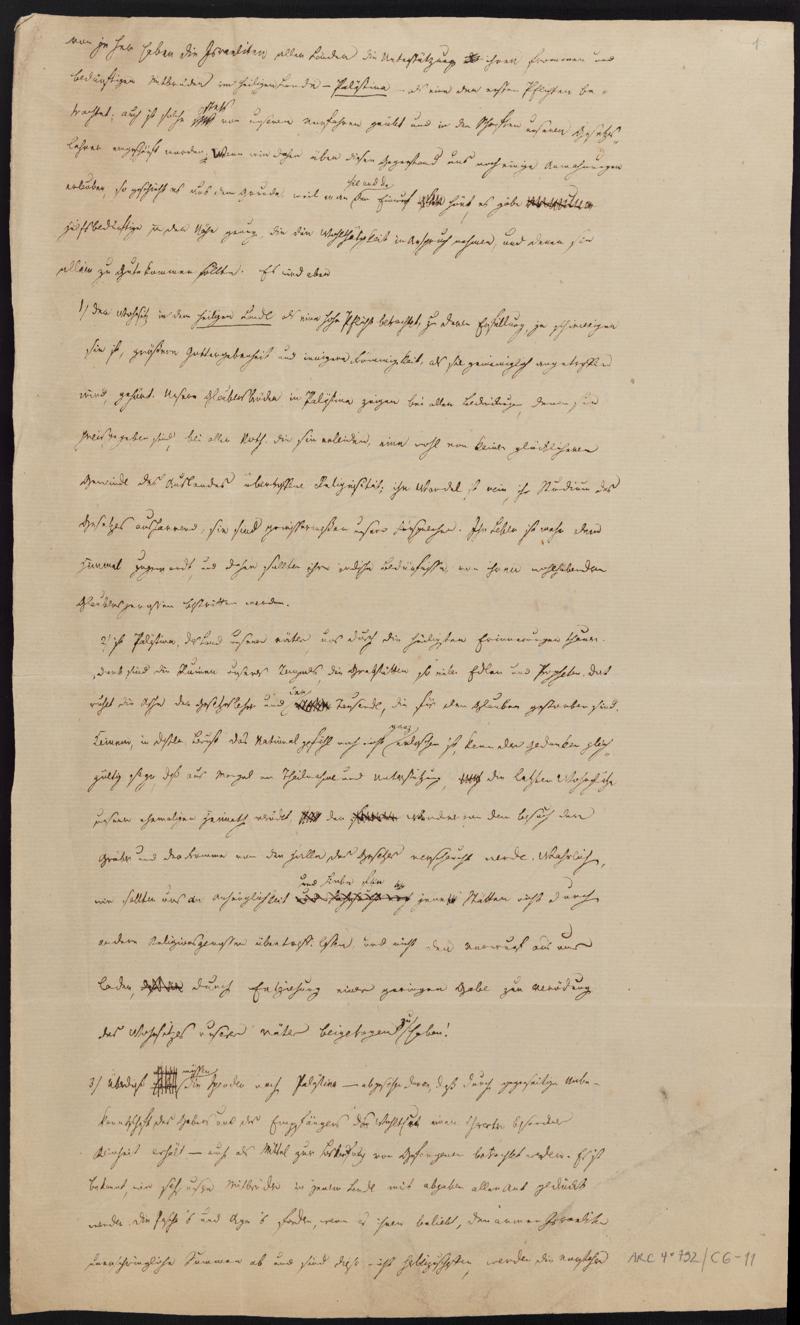 1
Von je her haben die Israeliten aller Länder die Unterstützung ihrer frommen und
bedürftigen Mitbrüder im heiligen Lande – Palästina – als eine der ersten Pflichten be-
trachtet; auch ist solche stets von unseren Vorfahren geübt und in den Schriften unserer Gesetzes-
lehrer eingeschärft worden; Wenn wir daher über diesen Gegenstand uns noch einige Anmahnungen
erlauben, so geschieht es aus dem Grunde, weil man den Einwurf hört, es gäbe
Hilfsbedürftige in der Nähe genug, die die Wohlthätigkeit in Anspruch nehmen, und denen sie
allein zu Gute kommen sollte. Es wird aber
1) der Wohnsitz in dem heiligen Lande als eine hohe Pflicht betrachtet, zu deren Erfüllung, je schwieriger
sie ist, größere Gottergebenheit und innigere Frömmigkeit, als sie gemeiniglich angetroffen
wird, gehört. Unsere Glaubensbrüder in Palästina zeigen bei allen Bedrückungen, denen sie
preisgegeben sind, bei aller Noth, die sie erleiden, eine wohl von keiner glücklicheren
Gemeinde des Auslandes übertroffene Religiosität; ihr Wandel ist rein, ihr Studium des
Gesetzes ausharrend, sie sind gewissermaßen unsere Fürsprecher. Ihr Leben ist mehr dem
Himmel zugewandt, und daher sollten ihre irdischen Bedürfnisse von ihren wohlhabenderen
Glaubensgenossen bestritten werden.
2) ist Palästina, das Land unserer Väter uns durch die heiligsten Erinnerungen theuer.
Dort sind die Ruinen unseres Tempels, die Grabstätten so vieler Edlen und Propheten. Dort
ruhet die Asche der Gesetzeslehrer und der Tausende, die für den Glauben gestorben sind.
Keinem, in dessen Brust das Nationalgefühl noch nicht ganz erloschen ist, kann der Gedanke gleich-
gültig sein, daß aus Mangel an Theilnahme und Unterstützung, die letzten Wohnplätze
unserer ehemaligen Heimath verödet, der Wandrer von dem Besuch der
Gräber und der Fromme von den Hallen des Gesetzes verscheucht werde. Wahrlich,
wir sollten uns an Anhänglichkeit und Liebe für jene Stätten nicht durch
andere Religionsgenossen übertreffen lassen und nicht den Vorwurf auf uns
laden, durch Entziehung einer geringen Gabe zur Verödung
des Wohnsitzes unserer Väter beigetragen zu haben!
3) Überdieß müssen die Spenden nach Palästina – abgesehen davon, daß durch gegenseitige Unbe-
kanntschaft des Gebers und des Empfängers das Wohlthun einen besonderer
Reinheit erhält – auch als Mittel zur Loskaufung von Gefangenen betrachtet werden. Es ist
bekannt, wie sehr unsere Mitbrüder in jenem Lande mit Abgaben aller Art gedrückt
werden. Die Pascha's und Aga's fordern, wenn es ihnen beliebt, den armen Israeliten
unerschwingliche Summen ab und sind diese nicht herbeizuschaffen, werden die Vorsteher
ARC 4° 792/C6-11